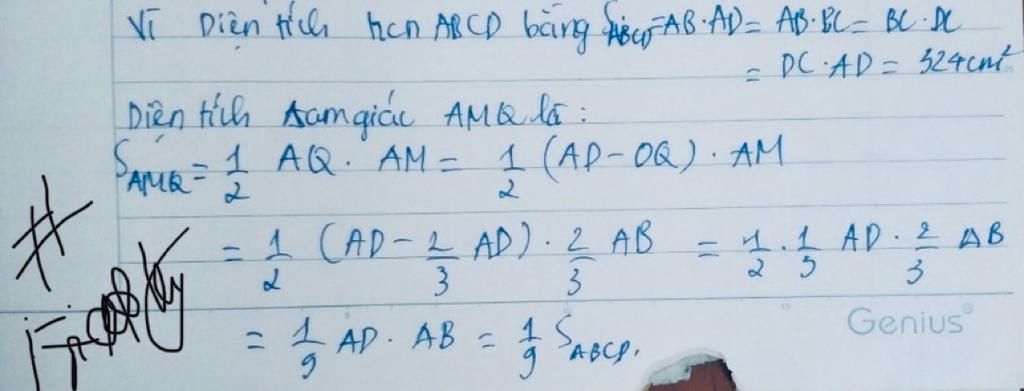 Vì Diện tích hcn ABCD bằng S_ABCD = AB · AD = AB · BC = BC · DC
= DC · AD = 324cm²
Diện tích tam giác AMQ là :
S_AMQ = 1/2 AQ · AM = 1/2 (AD - DQ) · AM
= 1/2 (AD - 2/3 AD) · 2/3 AB = 1/2 · 1/3 AD · 2/3 AB
= 1/9 AD · AB = 1/9 S_ABCD.
#
Genius®